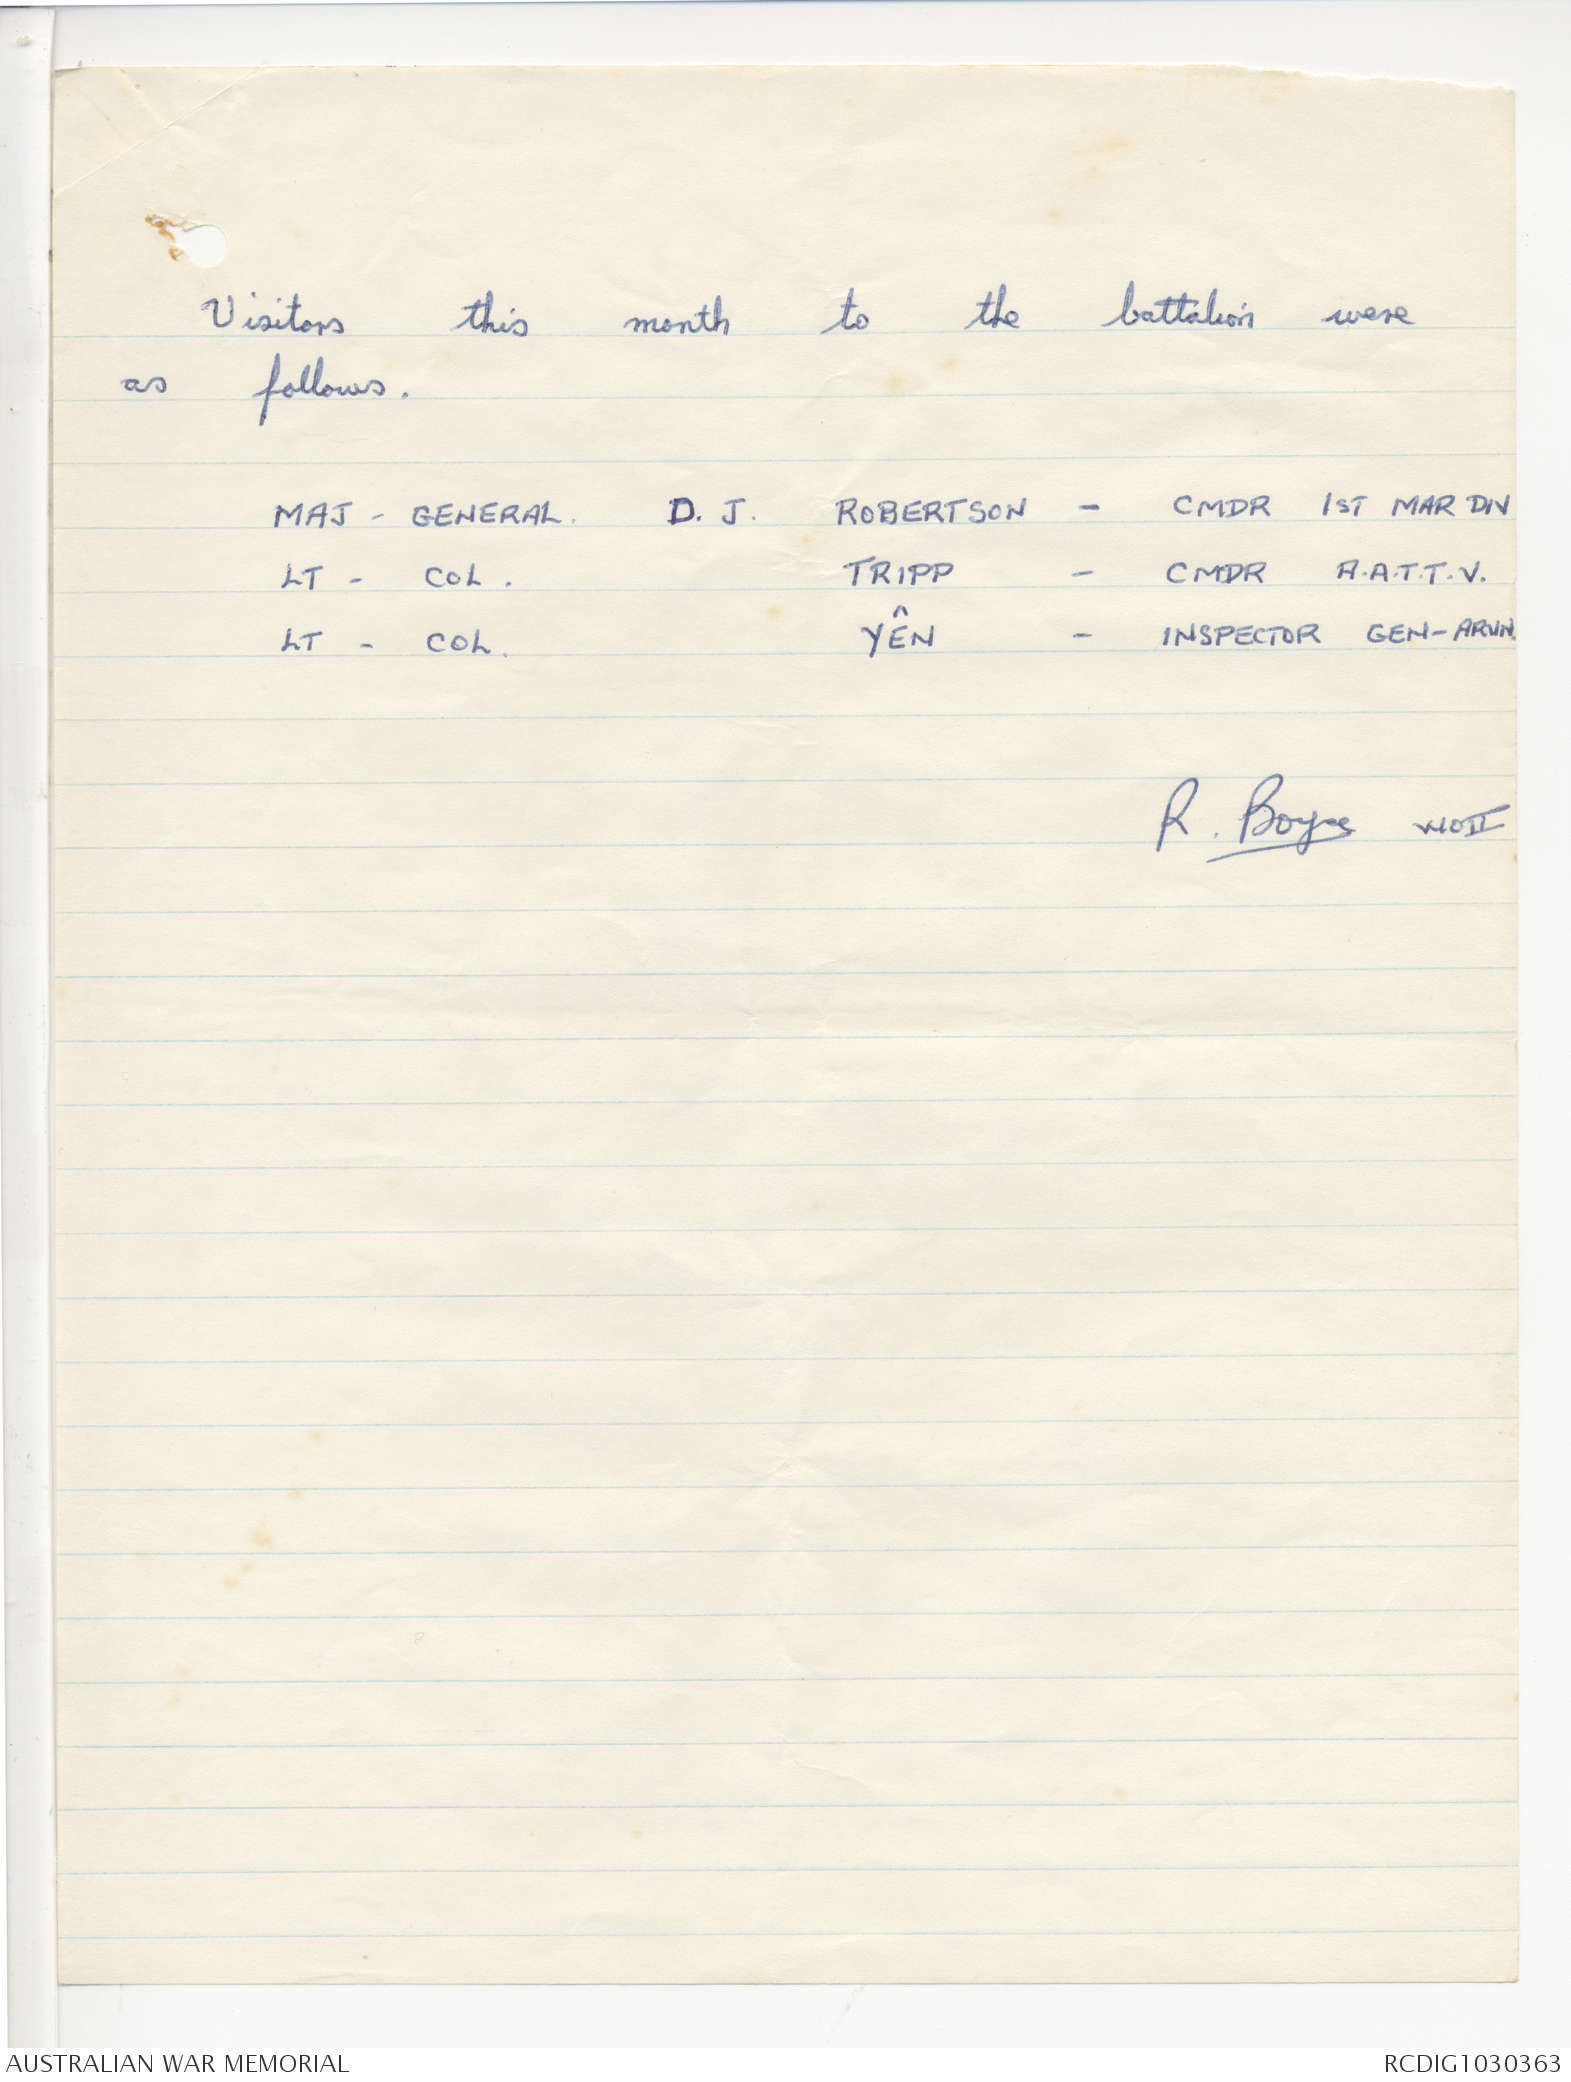 Visitors this month to the battalion were
as follows.
MAJ - GENERAL. D. J. ROBERTSON - CMDR 1ST MAR DIV
LT - COL. TRIPP - CMDR A.A.T.T.V.
LT - COL. YÊN - INSPECTOR GEN-ARVN.
R. Boyce WOII
AUSTRALIAN WAR MEMORIAL
RCDIG1030363